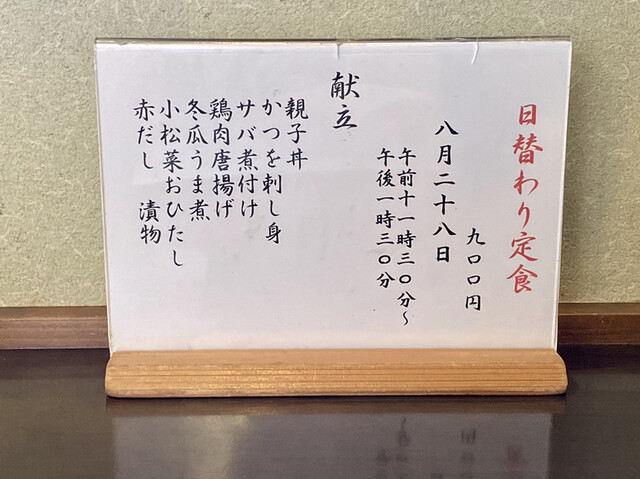 日替わり定食
九〇〇円
八月二十八日
午前十一時三〇分～
午後一時三〇分
献立
親子丼
かつを刺し身
サバ煮付け
鶏肉唐揚げ
冬瓜うま煮
小松菜おひたし
赤だし 漬物